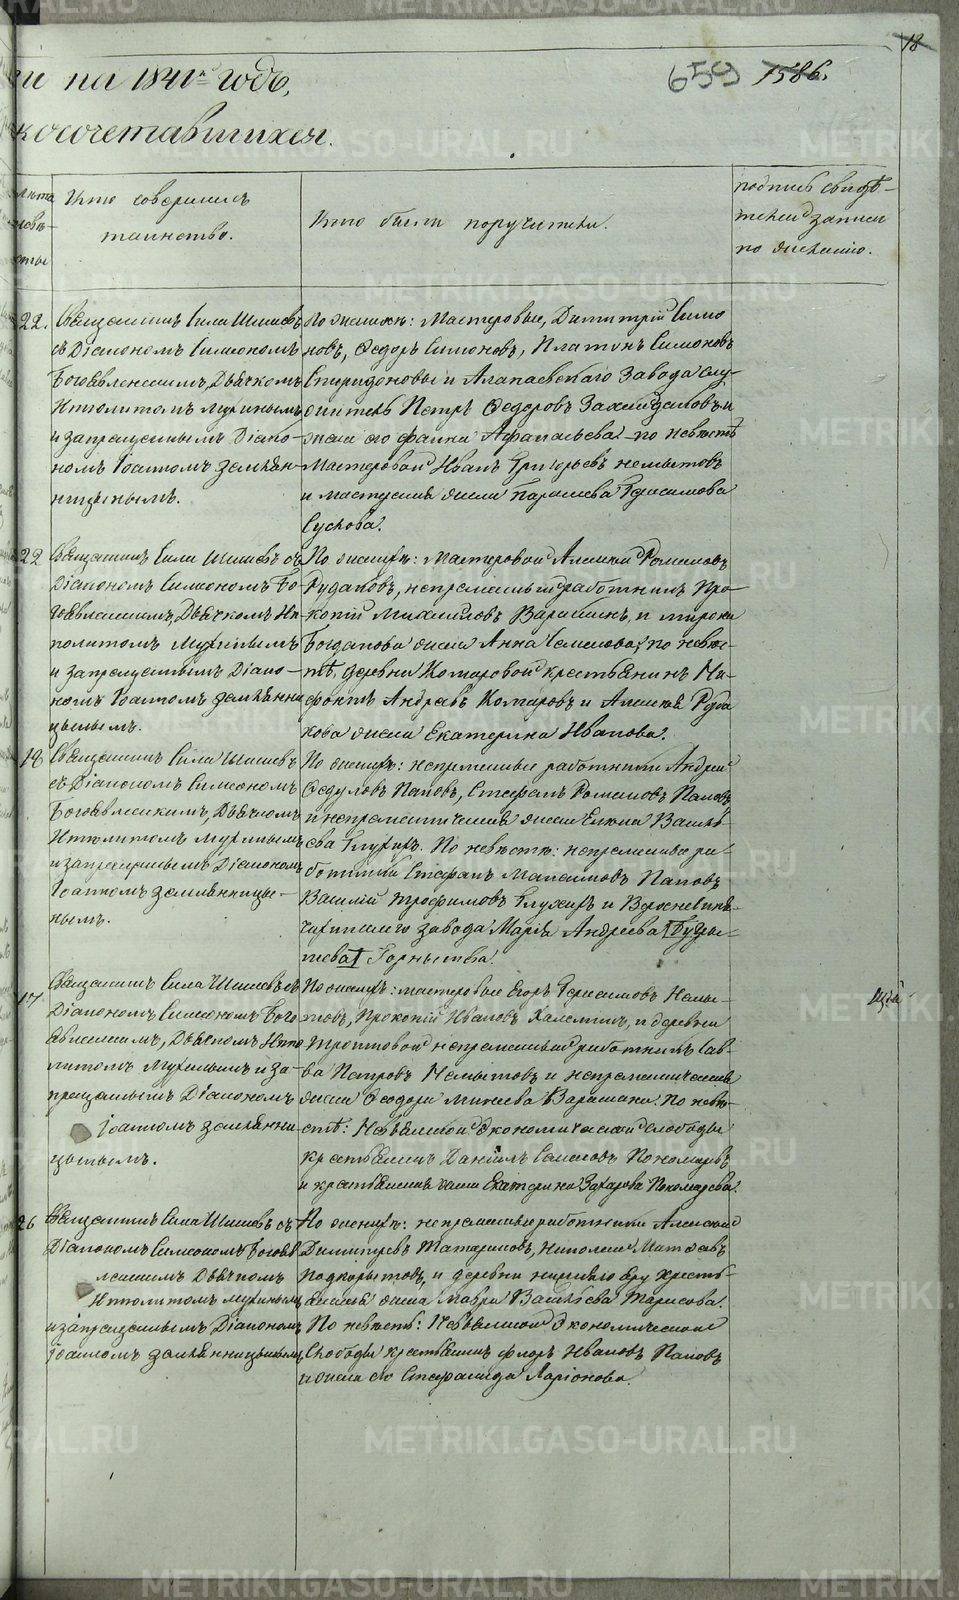 18
и на 1841й годъ,
659 1586.
косочетавшихся.
Кто совершилъ
таинство.
Кто были поручители.
подпись свидѣ-
телей записи
по желанію.
22. Священникъ Сила Шишевъ
съ Діакономъ Симеономъ
Богоявленскимъ, Дьячкомъ
Ипполитомъ Мухинымъ
и запрещеннымъ Діако-
номъ Іоанномъ Земляни-
цынымъ.
По женихѣ: Мастеровые, Димитрій Симо
новъ, Ѳедоръ Симоновъ, Платонъ Симоновъ
Спиридоновы и Алапаевскаго Завода слу-
житель Петръ Ѳедоровъ
жена его Афанасьева по невѣстѣ
Мастеровой Иванъ Григорьевъ Немытовъ
и мастерская жена Парасковья Герасимова
Сускова.
22 Священникъ Сила Шишевъ съ
Діакономъ Симеономъ Бо
гоявленскимъ, Дьячкомъ Ип-
политомъ Мухинымъ
и запрещеннымъ Діако-
номъ Іоанномъ Земляни
цынымъ.
По женихѣ: Мастеровой Алексей Романовъ
Рудаковъ, непременный работникъ Про-
копій Михайловъ Варашинъ, и Мирона
Богданова жена Анна Семенова; по невѣс-
тѣ, деревни Комаровой крестьянинъ Ни-
фонтъ Андреевъ Комаровъ и Алексѣя Руда
кова жена Екатерина Иванова.
18 Священникъ Сила Шишевъ
съ Діакономъ Симеономъ
Богоявленскимъ, Дьячкомъ
Ипполитомъ Мухинымъ
и запрещеннымъ Діакономъ
Іоанномъ Земляницы-
нымъ.
По женихѣ: непременные работники Андрей
Ѳедуловъ Паповъ, Стефанъ Романовъ Паповъ
и непременническая жена Василь-
ева Глухихъ. По невѣстѣ: непременные ра-
ботники Стефанъ Максимовъ Паповъ
Василій Трофимовъ Глухихъ и Верхнесиня-
чихинскаго завода Марія Андреева
17. Священникъ Сила Шишевъ съ
Діакономъ Симеономъ Бого
явленскимъ, Дьячкомъ Иппо
литомъ Мухинымъ и за-
прещеннымъ Діакономъ
Іоанномъ Земляни
цынымъ.
По женихѣ: мастеровые Егоръ Герасимовъ Немы-
товъ, Прокопій Ивановъ Халемин, и деревни
Тройцковой непременный работникъ Сав-
ва Петровъ Немытовъ и непременническая
жена Ѳеодора Михеева Варашина. По невѣ-
стѣ: Невьянской Экономической слободы
крестьянинъ Даніилъ Семеновъ Пономаревъ
и крестьянская жена Екатерина Захарова Пономарева.
26 Священникъ Сила Шишевъ съ
Діакономъ Симеономъ Богояв
ленскимъ Дьячкомъ
Ипполитомъ Мухинымъ
и запрещеннымъ Діакономъ
Іоанномъ Земляницынымъ
По женихѣ: непременные работники Алексей
Димитріевъ Татариновъ, Николай Матвеевъ
Подкорытовъ, и деревни кресть-
янская жена Мавра Васильева Тарасова.
По невѣстѣ: Невьянской Экономической
Слободы крестьянинъ Флоръ Ивановъ Паповъ
и жена его Стефанида Ларіонова.
METRIKI.GASO-URAL.RU